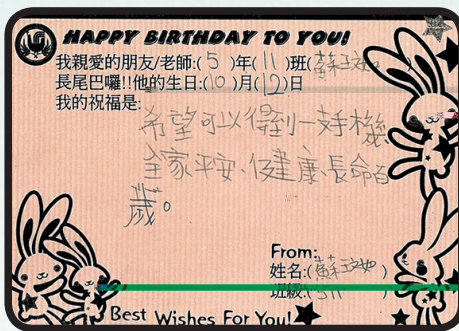 HAPPY BIRTHDAY TO YOU!
我親愛的朋友/老師:(5)年(11)班(蘇玟如)
長尾巴囉!!他的生日:(10)月(12)日
我的祝福是:
希望可以得到一支手機
全家平安、健康、長命百
歲。
From:
姓名:(蘇玟如)
班級:(511)
Best Wishes For You!